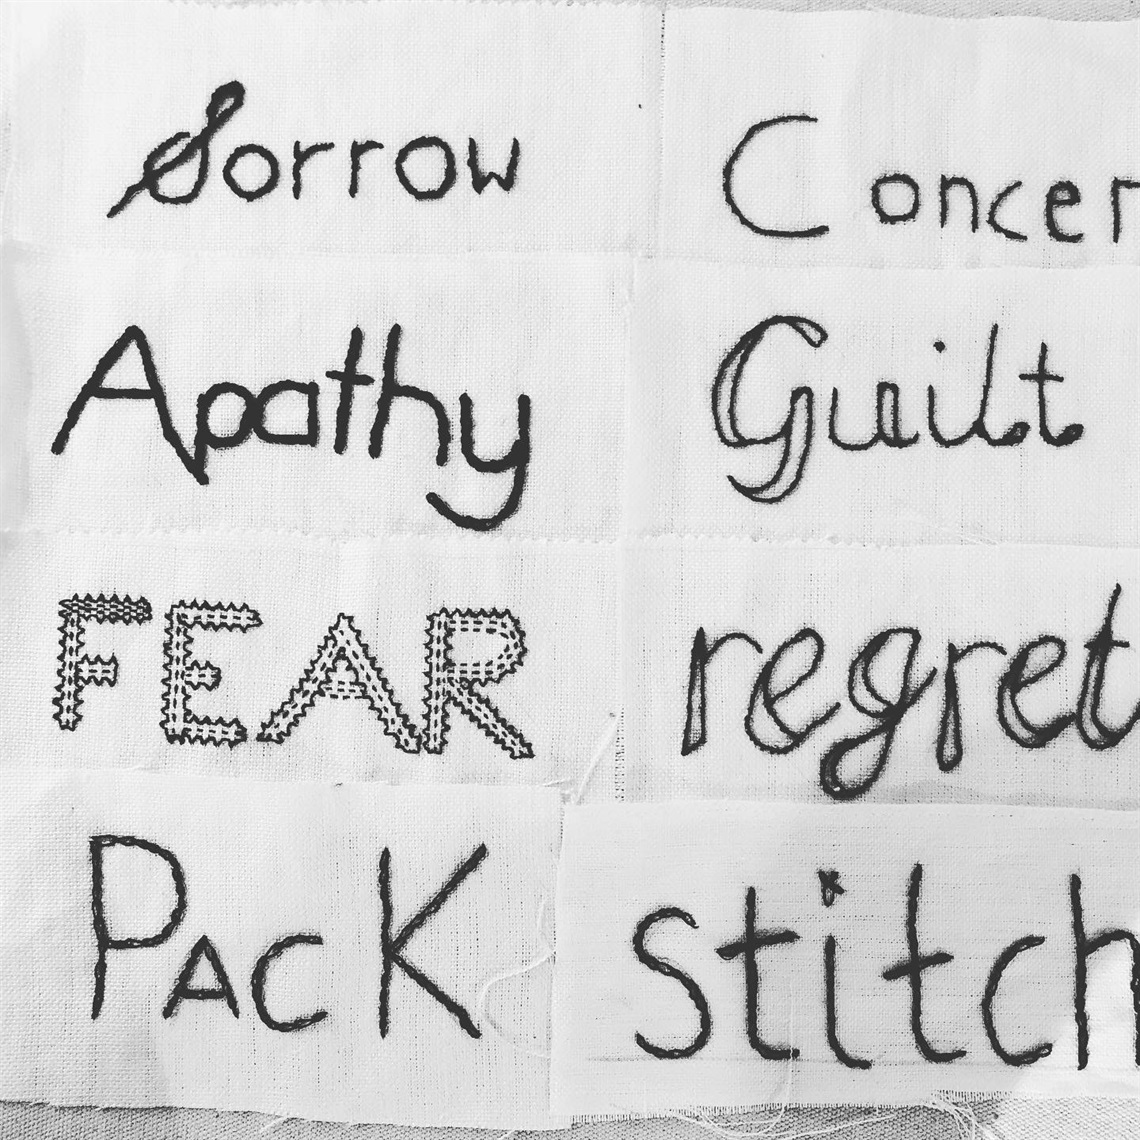 Sorrow Concer
Apathy Guilt
FEAR regret
PacK stitch